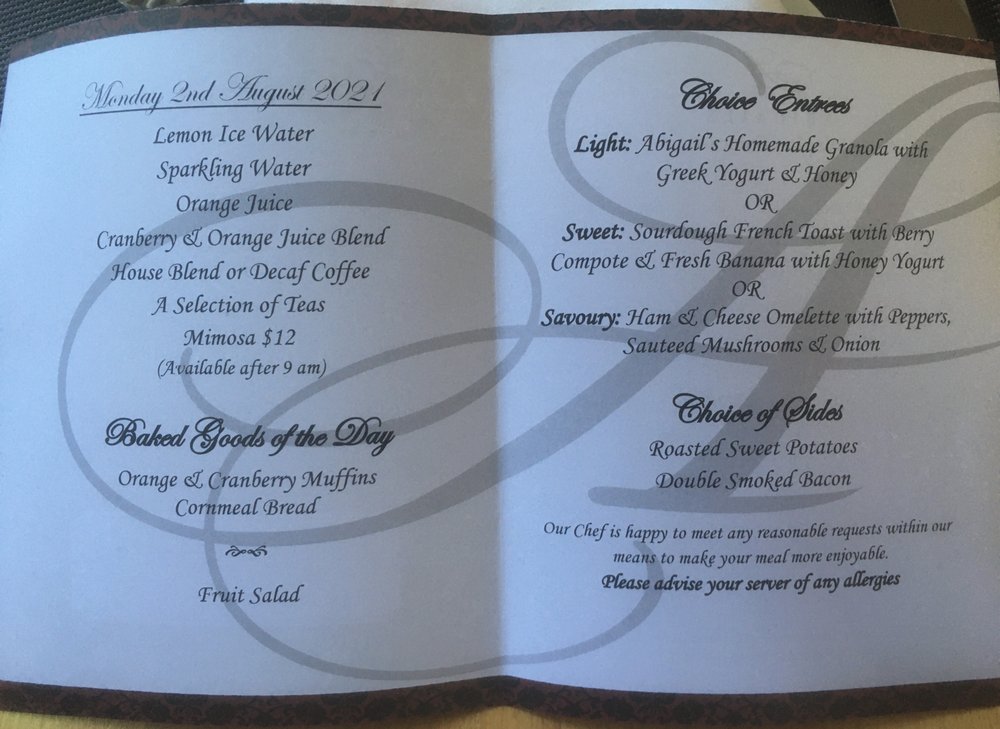 Monday 2nd August 2021
Lemon Ice Water
Sparkling Water
Orange Juice
Cranberry & Orange Juice Blend
House Blend or Decaf Coffee
A Selection of Teas
Mimosa $12
(Available after 9 am)
Baked Goods of the Day
Orange & Cranberry Muffins
Cornmeal Bread
Fruit Salad
Choice Entrees
Light: Abigail's Homemade Granola with
Greek Yogurt & Honey
OR
Sweet: Sourdough French Toast with Berry
Compote & Fresh Banana with Honey Yogurt
OR
Savoury: Ham & Cheese Omelette with Peppers,
Sauteed Mushrooms & Onion
Choice of Sides
Roasted Sweet Potatoes
Double Smoked Bacon
Our Chef is happy to meet any reasonable requests within our
means to make your meal more enjoyable.
Please advise your server of any allergies